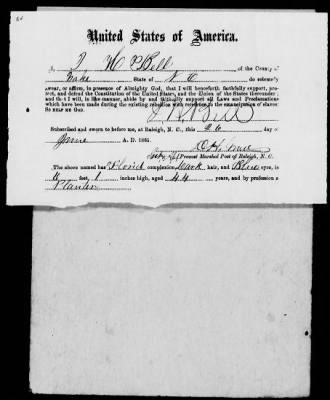 United States of America.
I, W P Bell of the County of
Wake State of N C do solemnly
swear, or affirm, in presence of Almighty God, that I will henceforth faithfully support, pro-
tect, and defend the Constitution of the United States, and the Union of the States thereunder;
and that I will, in like manner, abide by and faithfully support all Laws and Proclamations
which have been made during the existing rebellion with reference to the emancipation of slaves
SO HELP ME GOD.
Bell
Subscribed and sworn to before me, at Raleigh, N. C., this 26 day of
June A. D. 1865.
Provost Marshal Post of Raleigh, N. C.
The above named has Florid complexion, Dark hair, and Blue eyes, is
feet, 1 inches high, aged 44 years, and by profession a
Planter